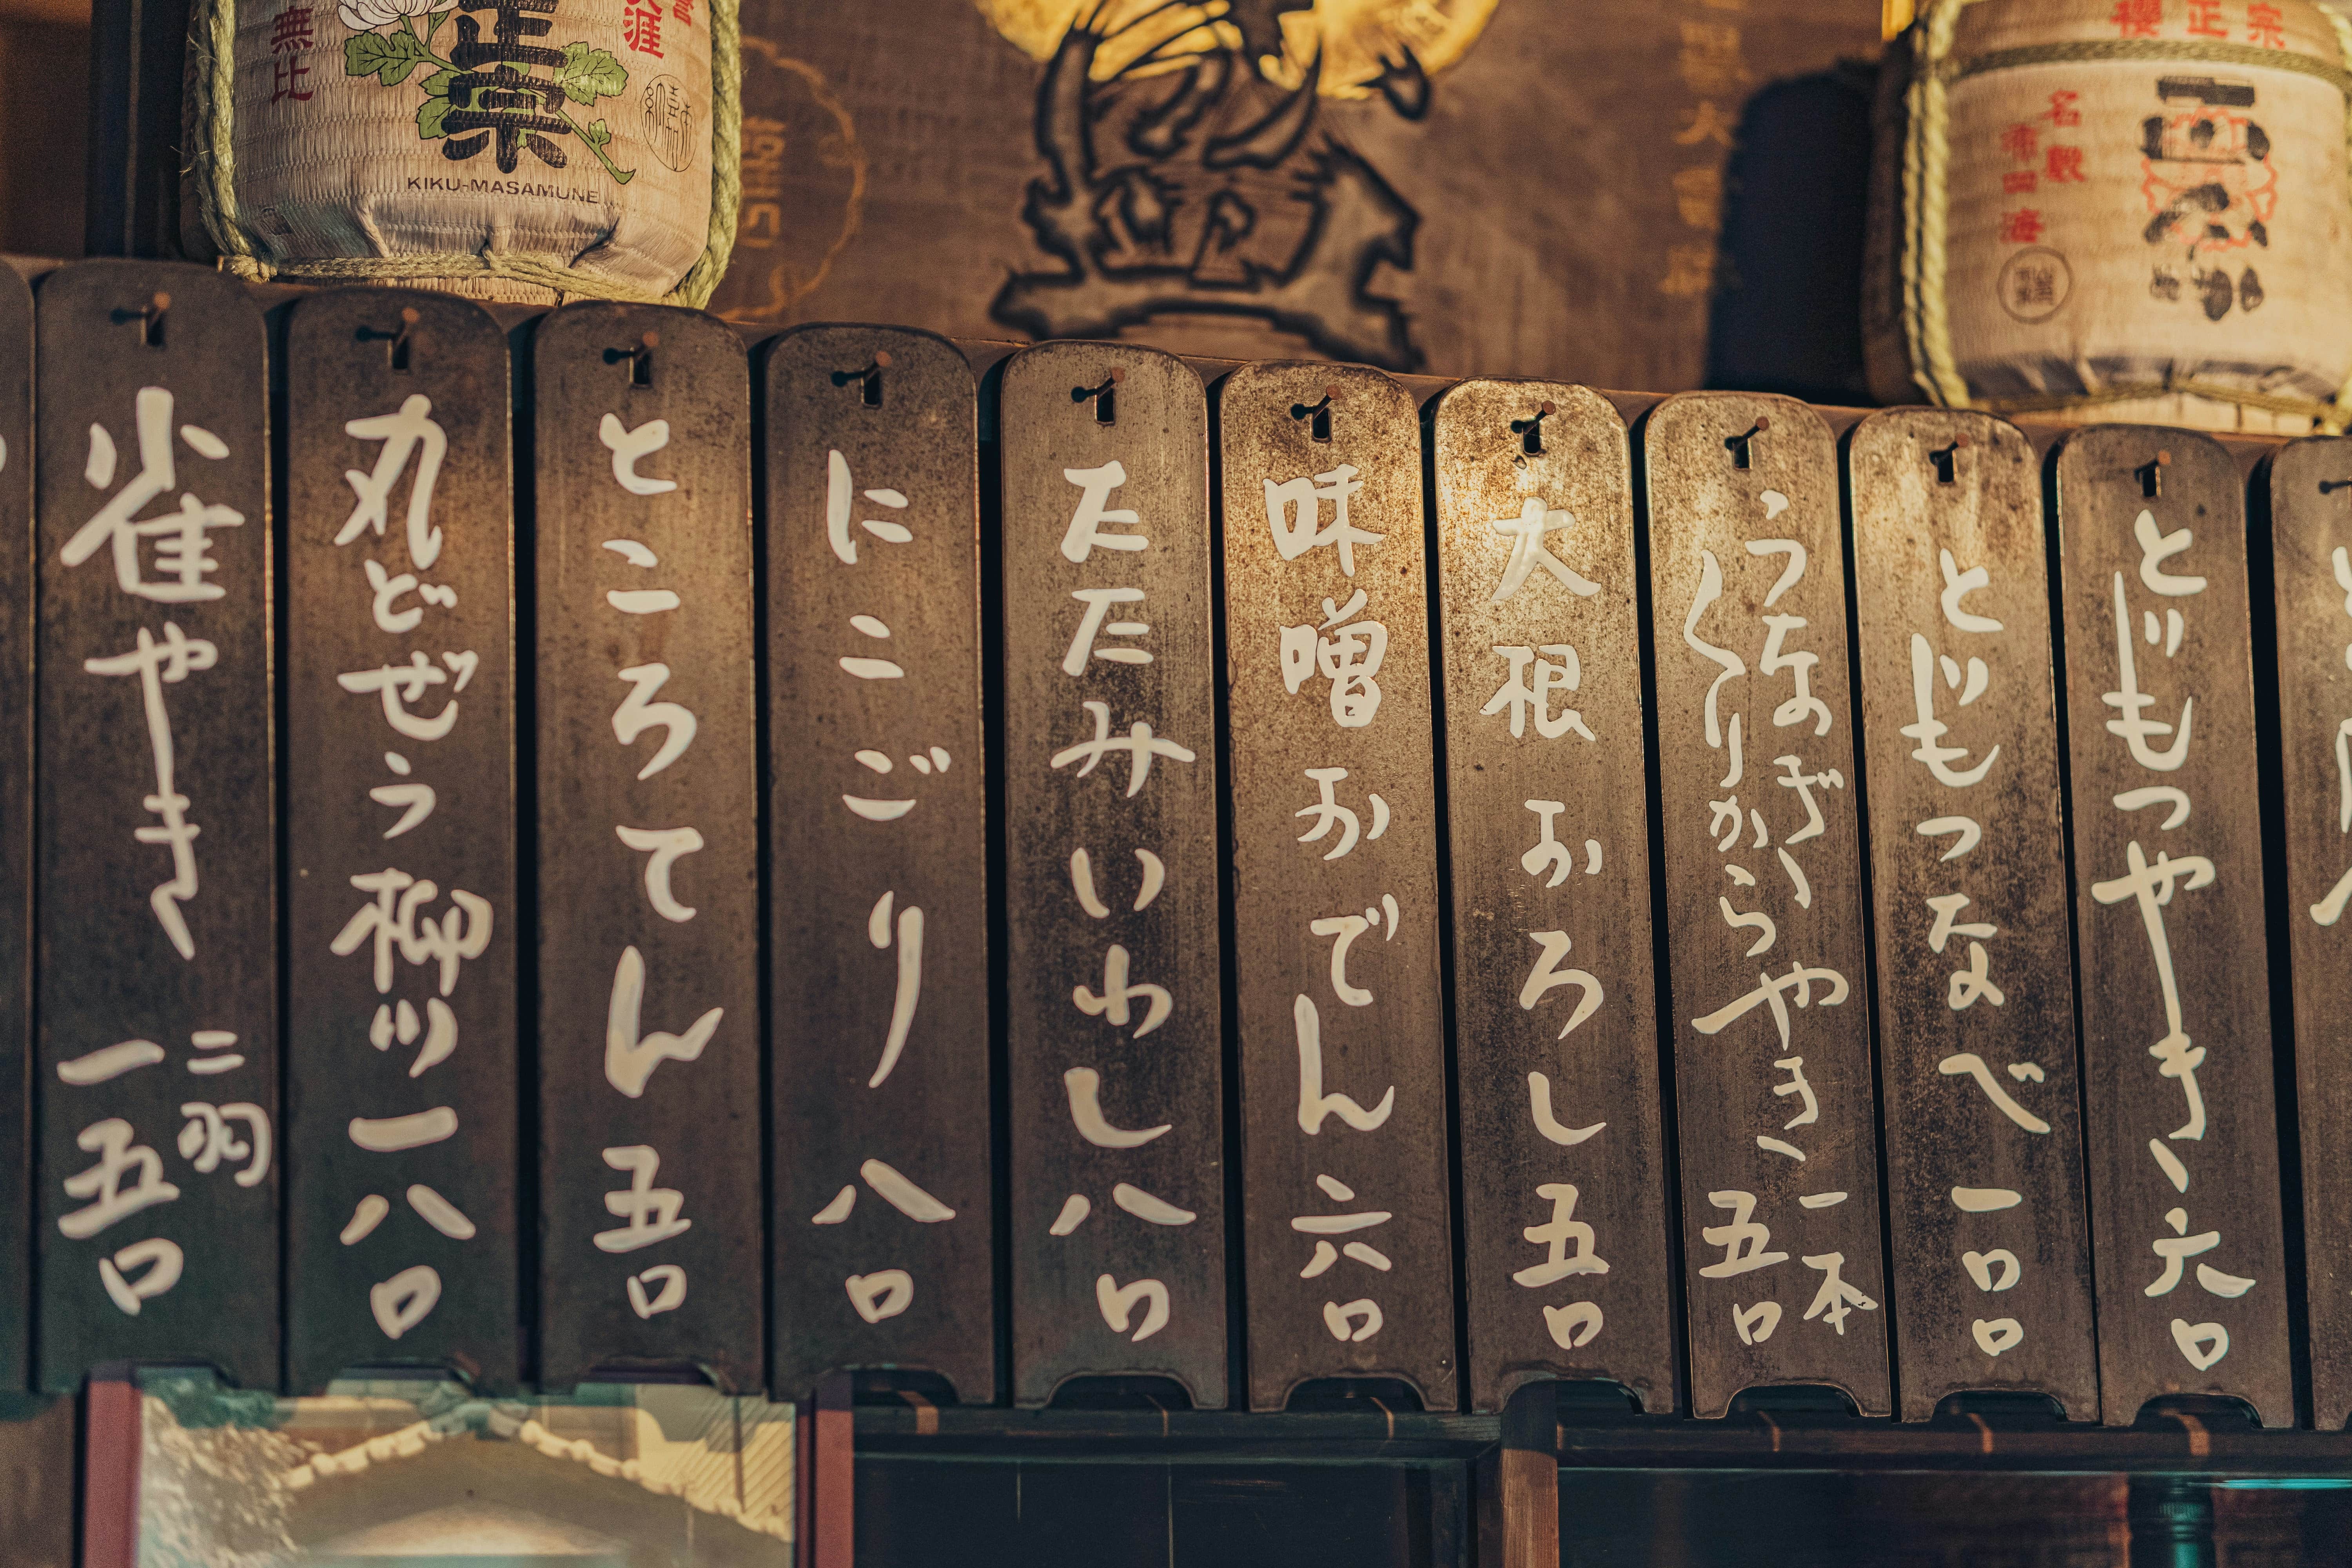 正宗
無比
KIKU-MASAMUNE
櫻正宗
名殿
とじもつやき 六〇
とじもつなべ 一〇〇
うなぎ
くりからやき 一本
五〇
大根おろし 五〇
味噌おでん 六〇
たたみいわし 八〇
にこごり 八〇
ところてん 五〇
丸どぜう柳川 一八〇
雀やき 二羽
一五〇